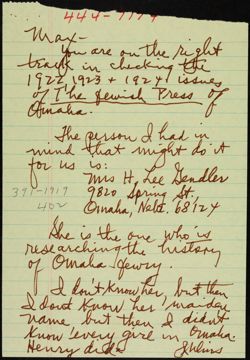 444-7177
Max-
You are on the right
track in checking the
1922, 1923 + 1924 issues
of The Jewish Press of
Omaha.
The person I had in
mind that might do it
for us is:
Mrs H. Lee Gendler
9820 Spring St.
Omaha, Nebr. 68124
391-1919
402
She is the one who is
researching the history
of Omaha Jewry.
I don't know her, but then
I dont know her maiden
name, but then I didn't
know 'every girl in Omaha
Henry did.